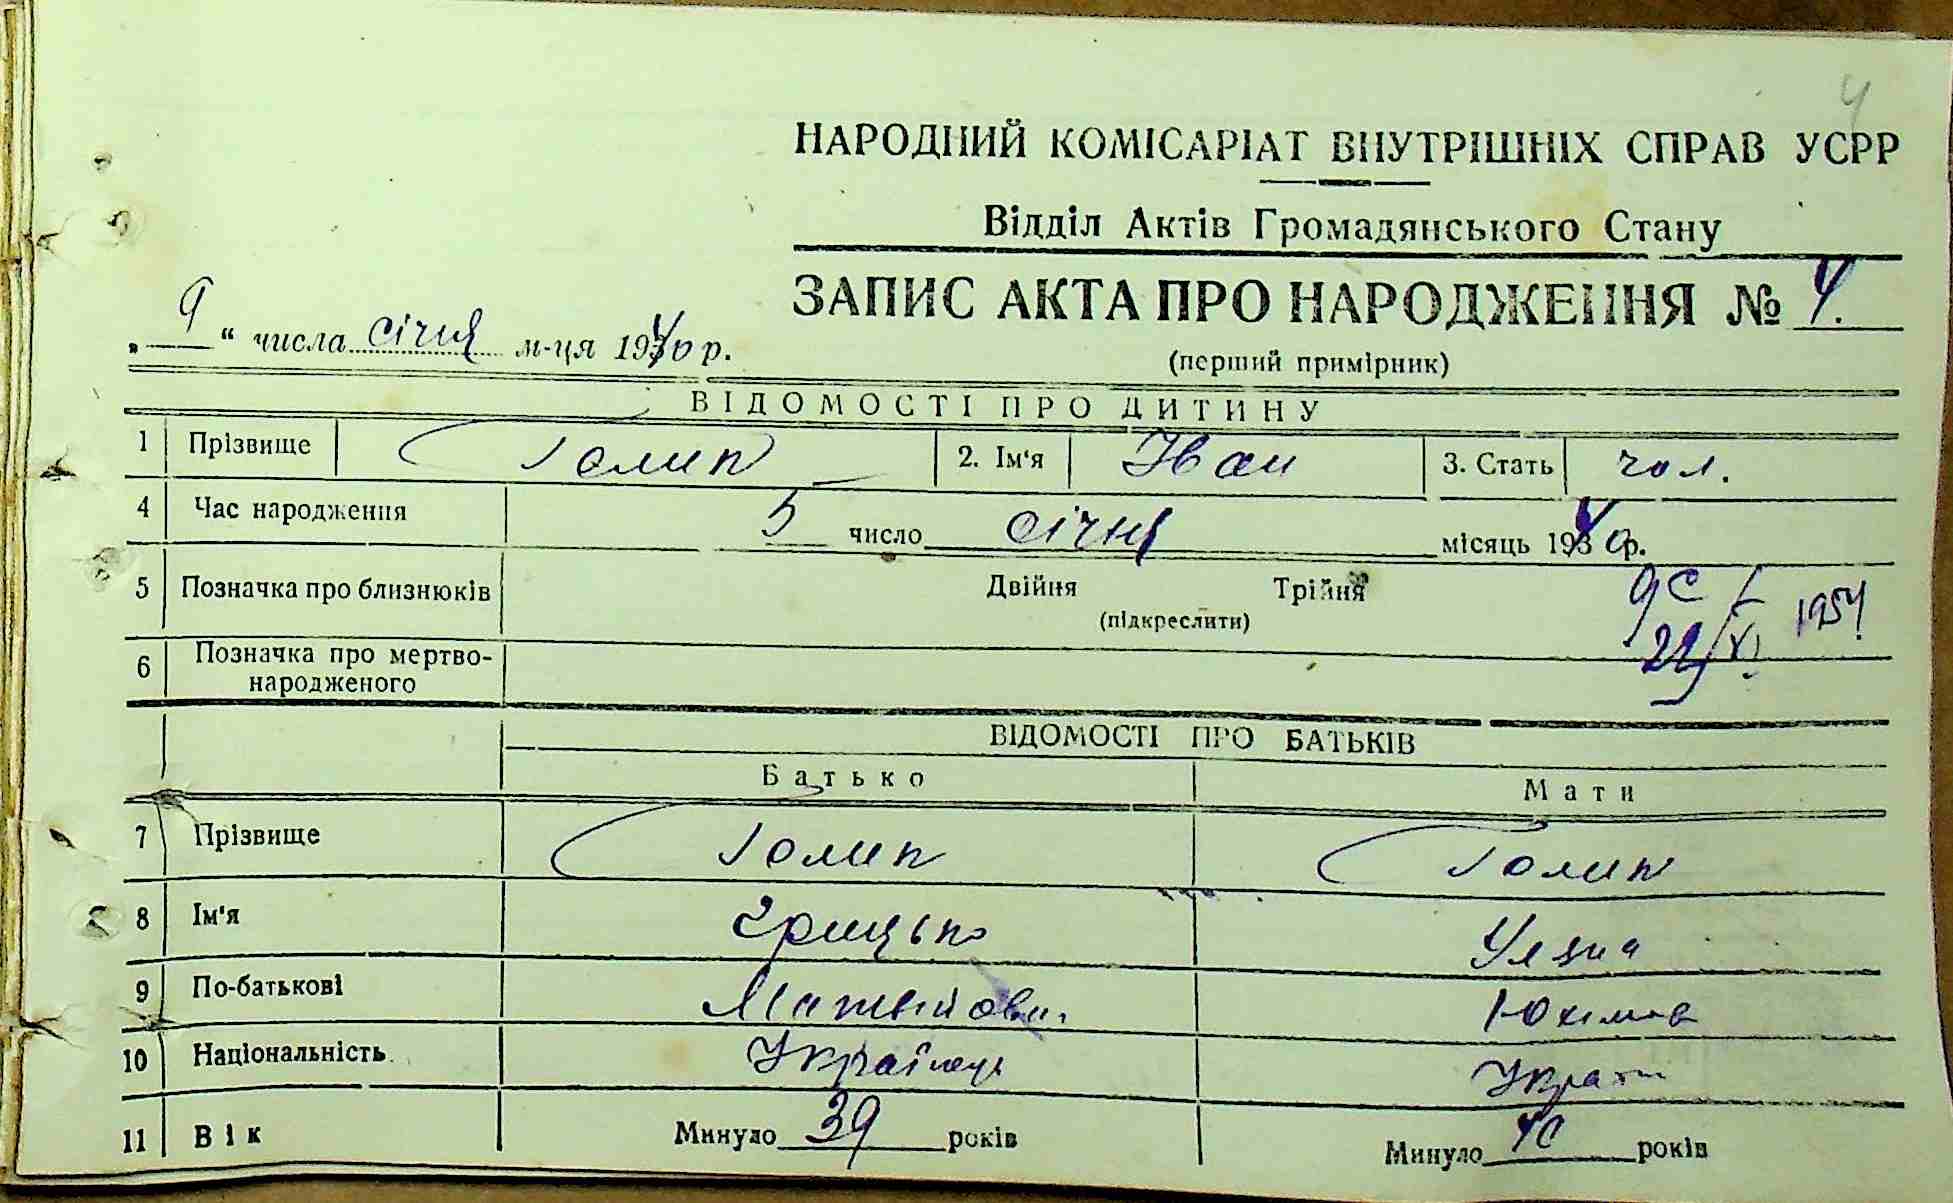 4
НАРОДНИЙ КОМІСАРІАТ ВНУТРІШНІХ СПРАВ УСРР
Відділ Актів Громадянського Стану
ЗАПИС АКТА ПРО НАРОДЖЕННЯ № 4.
„ 9 “ числа січня м-ця 1940 р.
(перший примірник)
ВІДОМОСТІ ПРО ДИТИНУ
1 Прізвище Голик 2. Ім'я Іван 3. Стать чол.
4 Час народження 5 число січня місяць 1940 р.
5 Позначка про близнюків Двійня Трійня
(підкреслити)
1954
6 Позначка про мертво-
народженого
ВІДОМОСТІ ПРО БАТЬКІВ
Батько Мати
7 Прізвище Голик Голик
8 Ім'я Грицько Уляна
9 По-батькові Матвійов. Юхимов
10 Національність Українець Украин
11 Вік Минуло 39 років Минуло 40 років